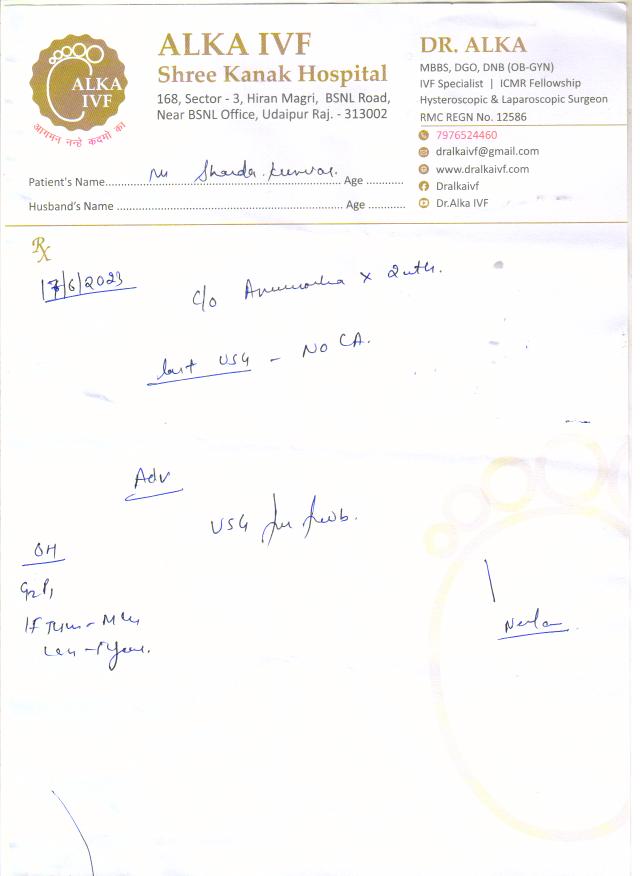 ALKA IVF
Shree Kanak Hospital
168, Sector - 3, Hiran Magri, BSNL Road,
Near BSNL Office, Udaipur Raj. - 313002
ALKA
IVF
आगमन नन्हे कदमों का
DR. ALKA
MBBS, DGO, DNB (OB-GYN)
IVF Specialist | ICMR Fellowship
Hysteroscopic & Laparoscopic Surgeon
RMC REGN No. 12586
7976524460
dralkaivf@gmail.com
www.dralkaivf.com
Dralkaivf
Dr.Alka IVF
Patient's Name Sharda Age
Husband's Name Age
Rx
17/6/2023
c/o
last USG - NO CA.
Adv
USG for
OH
G2P1